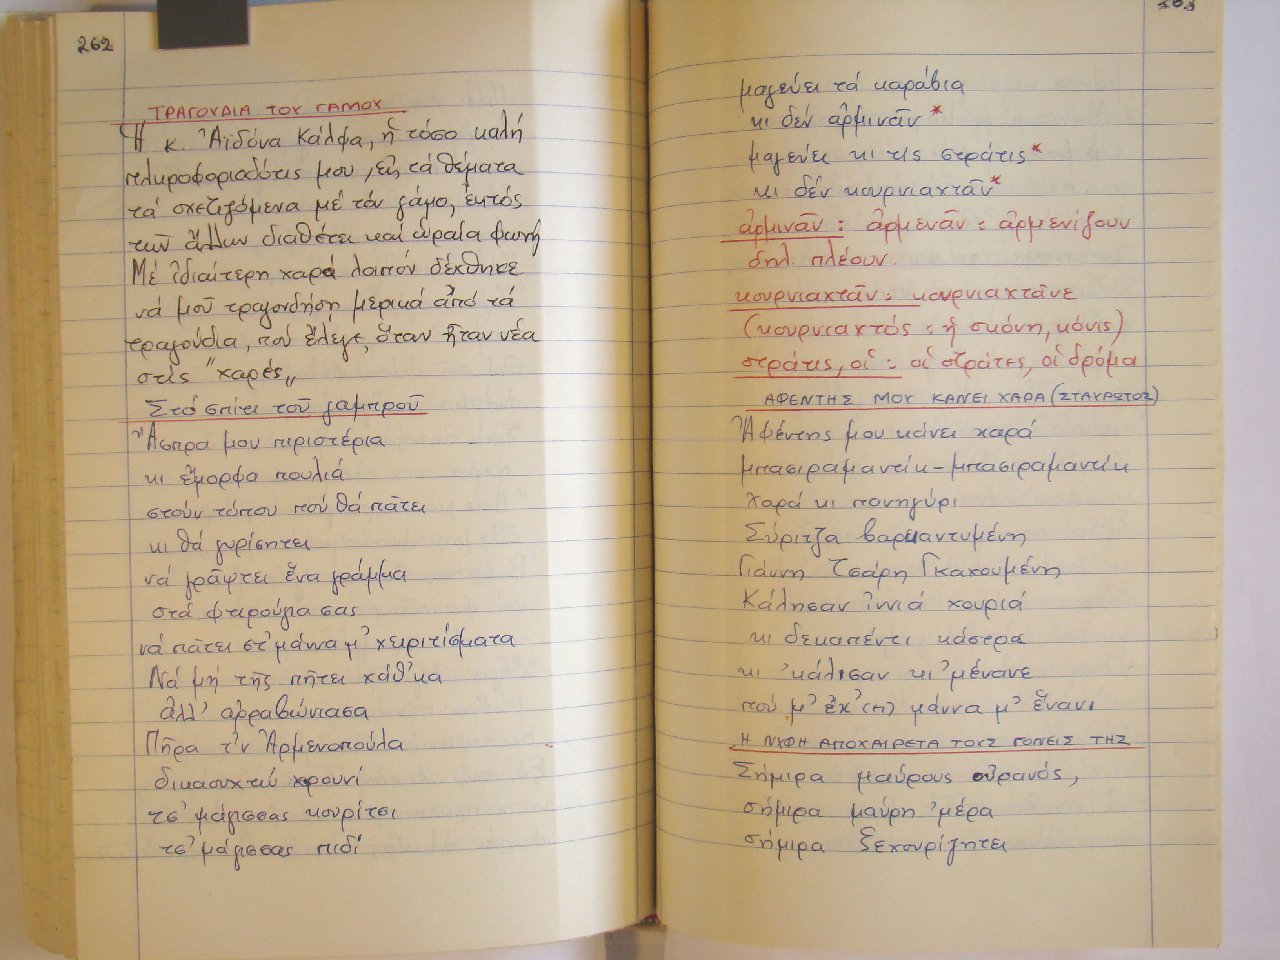 262
ΤΡΑΓΟΥΔΙΑ ΤΟΥ ΓΑΜΟΥ
Ἡ κ. Ἀϊδόνα Κάλφα, ἡ τόσο καλή
πληροφοριοδότις μου, εἰς τά θέματα
τά σχετιζόμενα μέ τόν γάμο, ἐκτός
τῶν ἄλλων διαθέτει καί ὡραία φωνή
Μέ ἰδιαίτερη χαρά λοιπόν δέχθηκε
νά μοῦ τραγουδήση μερικά ἀπό τά
τραγούδια, πού ἔλεγε, ὅταν ἦταν νέα
στίς "χαρές"
Στό σπίτι τοῦ γαμπροῦ
Ἄσπρα μου περιστέρια
κι ἔμορφα πουλιά
στούν τόπου πού θά πᾶτει
κι θά γυρίσητει
νά γρᾶψτει ἕνα γράμμα
στά φτερούγια σας
νά πᾶτει στ' μάννα μ' χειριτίσματα
Νά μή τῆς πῆτει χάθ'κα
ἀλλ' ἀρραβώνιασα
Πῆρα τ'ν Ἀρμενοπούλα
δικαουχτώ χρουνί
τσ' μάγισσας κουρίτσι
τσ' μάγισσας πιδί
263
μαγεύει τά καράβια
κι δέν ἀρμινᾶν *
μαγεύει κι τίς στράτις *
κι δέν κουρνιαχτᾶν *
ἀρμινᾶν : ἀρμενᾶν : ἀρμενίζουν
δηλ. πλέουν.
κουρνιαχτᾶν : κουρνιαχτᾶνε
(κουρνιαχτός : ἡ σκόνη, κόνις)
στράτις, οἱ : οἱ στράτες, οἱ δρόμοι
ΑΦΕΝΤΗΣ ΜΟΥ ΚΑΝΕΙ ΧΑΡΑ (ΣΤΑΥΡΩΤΟΣ)
Ἀφέντης μου κάνει χαρά
μπασιραμαντίκ - μπασιραμαντίκ
χαρά κι πανηγύρι
Σύριτζα βαρκαντυμένη
Γιάννη Τσάρη Γκαχουμένη
Κάλησαν ἰννιά χουριά
κι δεκαπέντι κάστρα
κι 'κάλισαν κι 'μένανε
πού μ' ἔχ' (η) μάννα μ' ἕνανι
Η ΝΥΦΗ ΑΠΟΧΑΙΡΕΤΑ ΤΟΥΣ ΓΟΝΕΙΣ ΤΗΣ
Σήμιρα μαύρους οὐρανός,
σήμιρα μαύρη 'μέρα
σήμιρα ξεχουρίζητει